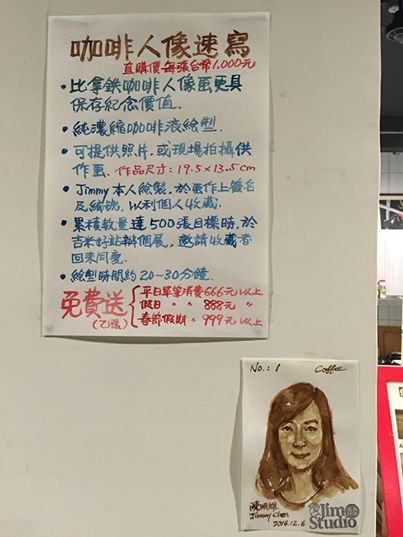 咖啡人像速寫
直購價每張台幣1,000元
• 比拿鐵咖啡人像畫更具
保存紀念價值.
• 純濃縮咖啡液繪製.
• 可提供照片,或現場拍攝供
作畫. 作品尺寸: 19.5×13.5 cm
• Jimmy 本人繪製, 於畫作上簽名
及編號, 以利個人收藏.
• 累積數量達500張目標時, 於
吉米好站辦個展, 邀請收藏者
回來同慶.
• 繪製時間約20~30分鐘.
免費送
(乙張)
平日單筆消費666元以上
假日 〃 〃 888元 〃
春節假期 〃 999元以上
No.: 1 Coffee
Jimmy Chen
2014.12.6
Jim
Studio